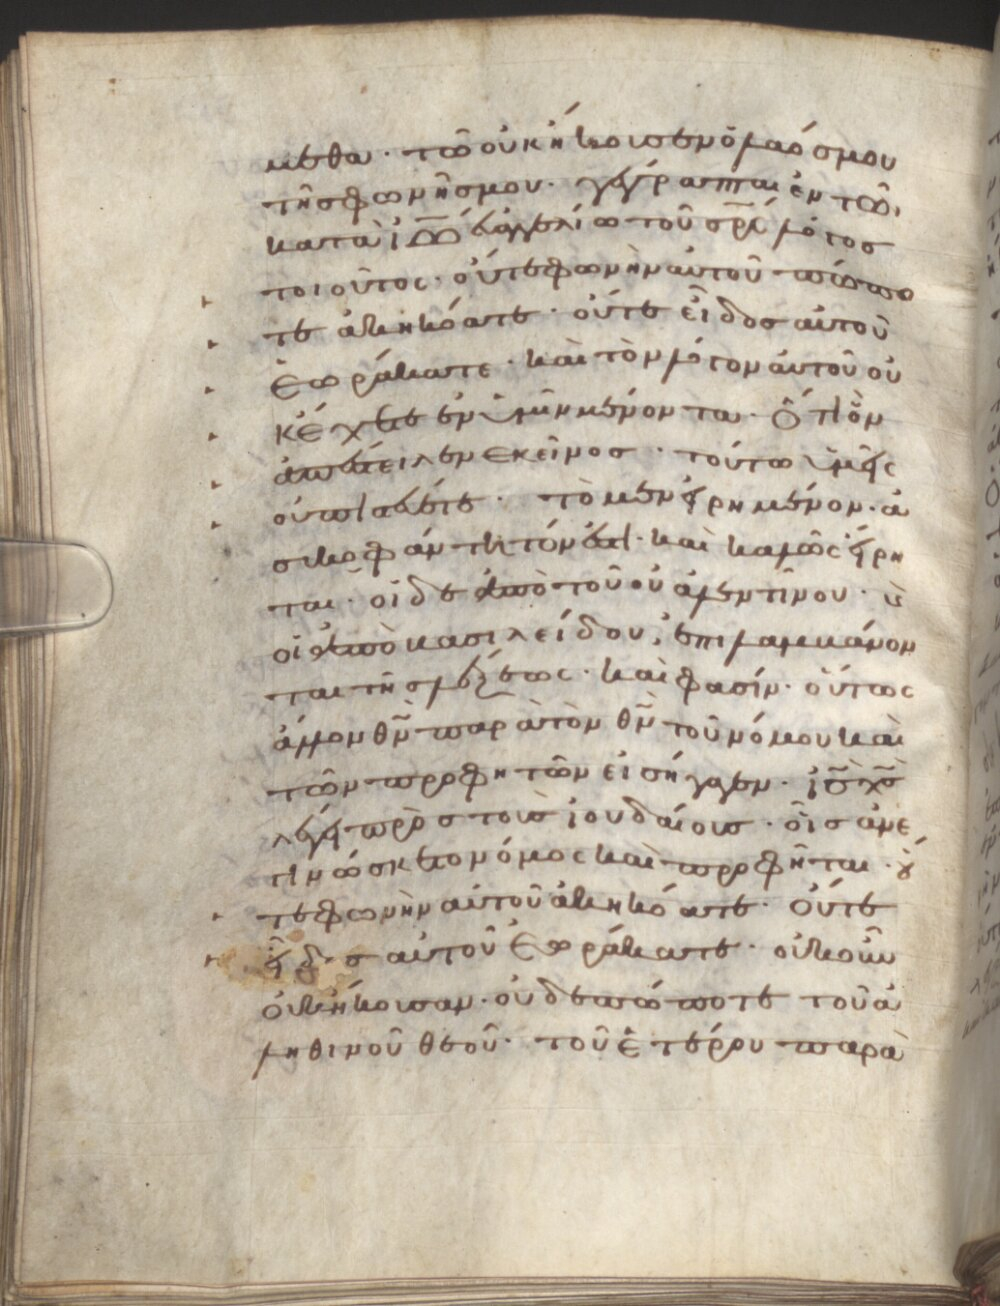 μεθα· τῶ οὐκ ἤκουσεν ὁ λαόσ μου
τῆσ φωνῆσ μου· γέγραπται ἐν τῶ
κατὰ ἰω εὐαγγελίω τοῦ σρσ λόγοσ
τοιοῦτος· οὔτε φωνὴν αὐτοῦ πώπο
τε ἀκηκόατε· οὔτε εἶδοσ αὐτοῦ
ἑωράκατε· καὶ τὸν λόγον αὐτοῦ οὐ
κ ἔχετε ἐν ὑμῖν μένοντα· ὅτι ὃν
ἀπέστειλεν ἐκεῖνοσ· τούτω ὑμεῖς
οὐ πιστεύετε· τὸ μὲν εἰρημένον· ἀ
σικοφάντητόν ἐστι· καὶ καλῶς εἴρη
ται· οἱ δὲ ἀπὸ τοῦ οὐαλεντίνου· κ
οἱ ἀπὸ βασιλείδου, ἐπιλαμβάνον
ται τῆσ λέξεως· καὶ φασίν· οὕτως
ἄλλον θν παρὰ τὸν θν τοῦ νόμου καὶ
τῶν προφητῶν εἰσήγαγεν· ισ χσ
λέγει πρὸσ τοὺσ ἰουδαίουσ· οἷσ ἀνε
γινώσκετο νόμος καὶ προφῆται· οὔ
τε φωνὴν αὐτοῦ ἀκηκόατε· οὔτε
εἶδοσ αὐτοῦ ἑωράκατε· οὐκοῦν
οὐκ ἤκουσαν· οὐδεπώποτε τοῦ ἀ
ληθινοῦ θεοῦ· τοῦ ἑτέρου παρὰ